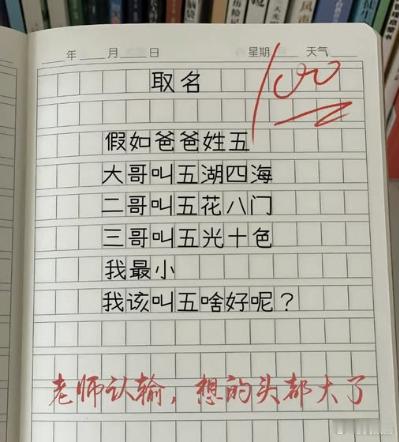 年 月 日 星期 天气
取名
100
假如爸爸姓五
大哥叫五湖四海
二哥叫五花八门
三哥叫五光十色
我最小
我该叫五啥好呢？
老师认输，想的头都大了